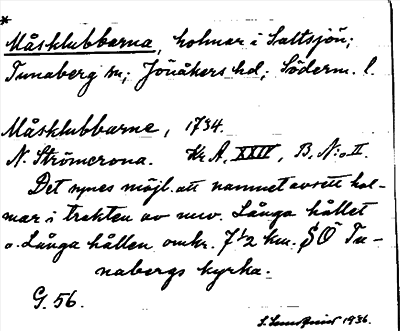 *
Måsklubbarna, holmar i Saltsjön;
Tunaberg sn; Jönåkers hd; Söderm. l.
Måsklubbarne, 1734.
N. Strömcrona. Kr A. XXIV, B. N:o II.
Det synes möjl. att namnet avsett hol-
mar i trakten av nuv. Långa hället
o. Långa hällen omkr. 7 1/2 km. SÖ Tu-
nabergs kyrka.
G. 56.
1936.